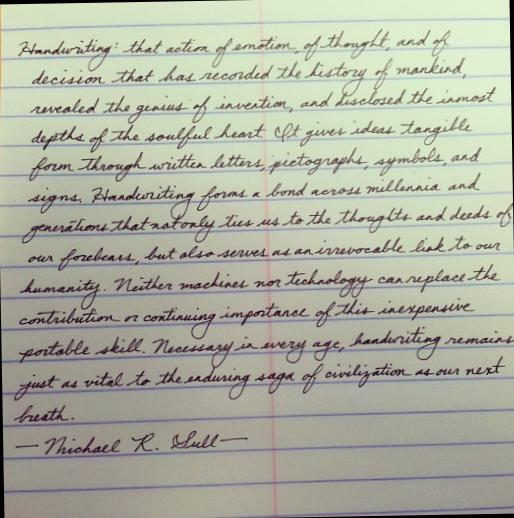 Handwriting: that action of emotion, of thought, and of
decision that has recorded the history of mankind,
revealed the genius of invention, and disclosed the inmost
depths of the soulful heart. It gives ideas tangible
form through written letters, pictographs, symbols, and
signs. Handwriting forms a bond across millennia and
generations that not only ties us to the thoughts and deeds of
our forebears, but also serves as an irrevocable link to our
humanity. Neither machines nor technology can replace the
contribution or continuing importance of this inexpensive
portable skill. Necessary in every age, handwriting remains
just as vital to the enduring saga of civilization as our next
breath.
— Michael R. Sull —